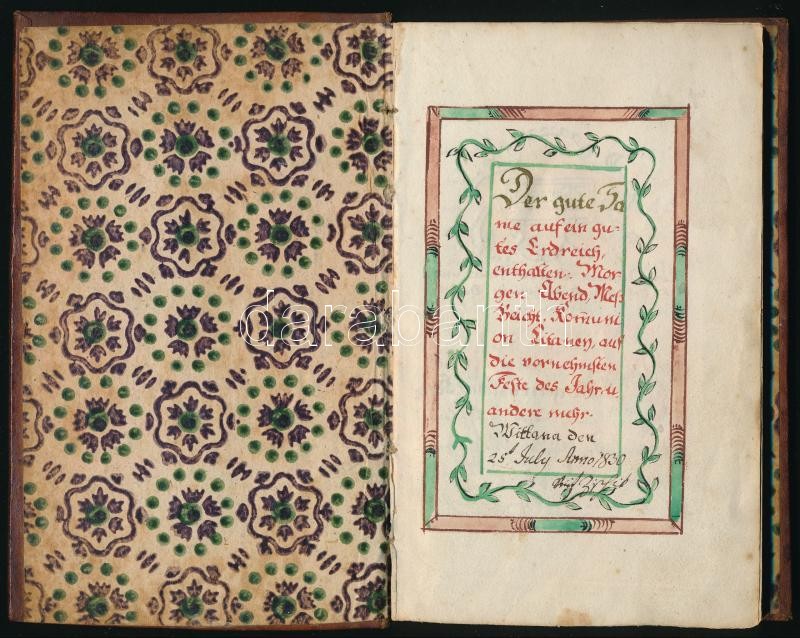 Der gute Sa
me auf ein gu-
tes Erdreich,
enthalten. Mor
gen Abend Meß
Beicht. Kom̃uni
on Litaney, auf
die vornehmsten
Feste des Jahr. u
andere mehr.
Wittana den
25t July Anno 1830
darabanth